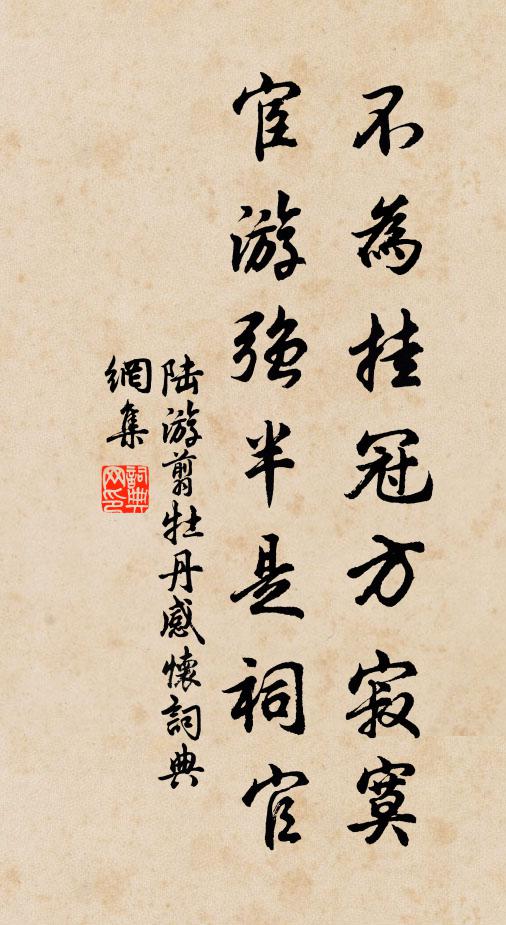 不為挂冠方寂寞
宦游強半是祠官
陆游翦牡丹感懷詞典
網集
詞典
网印